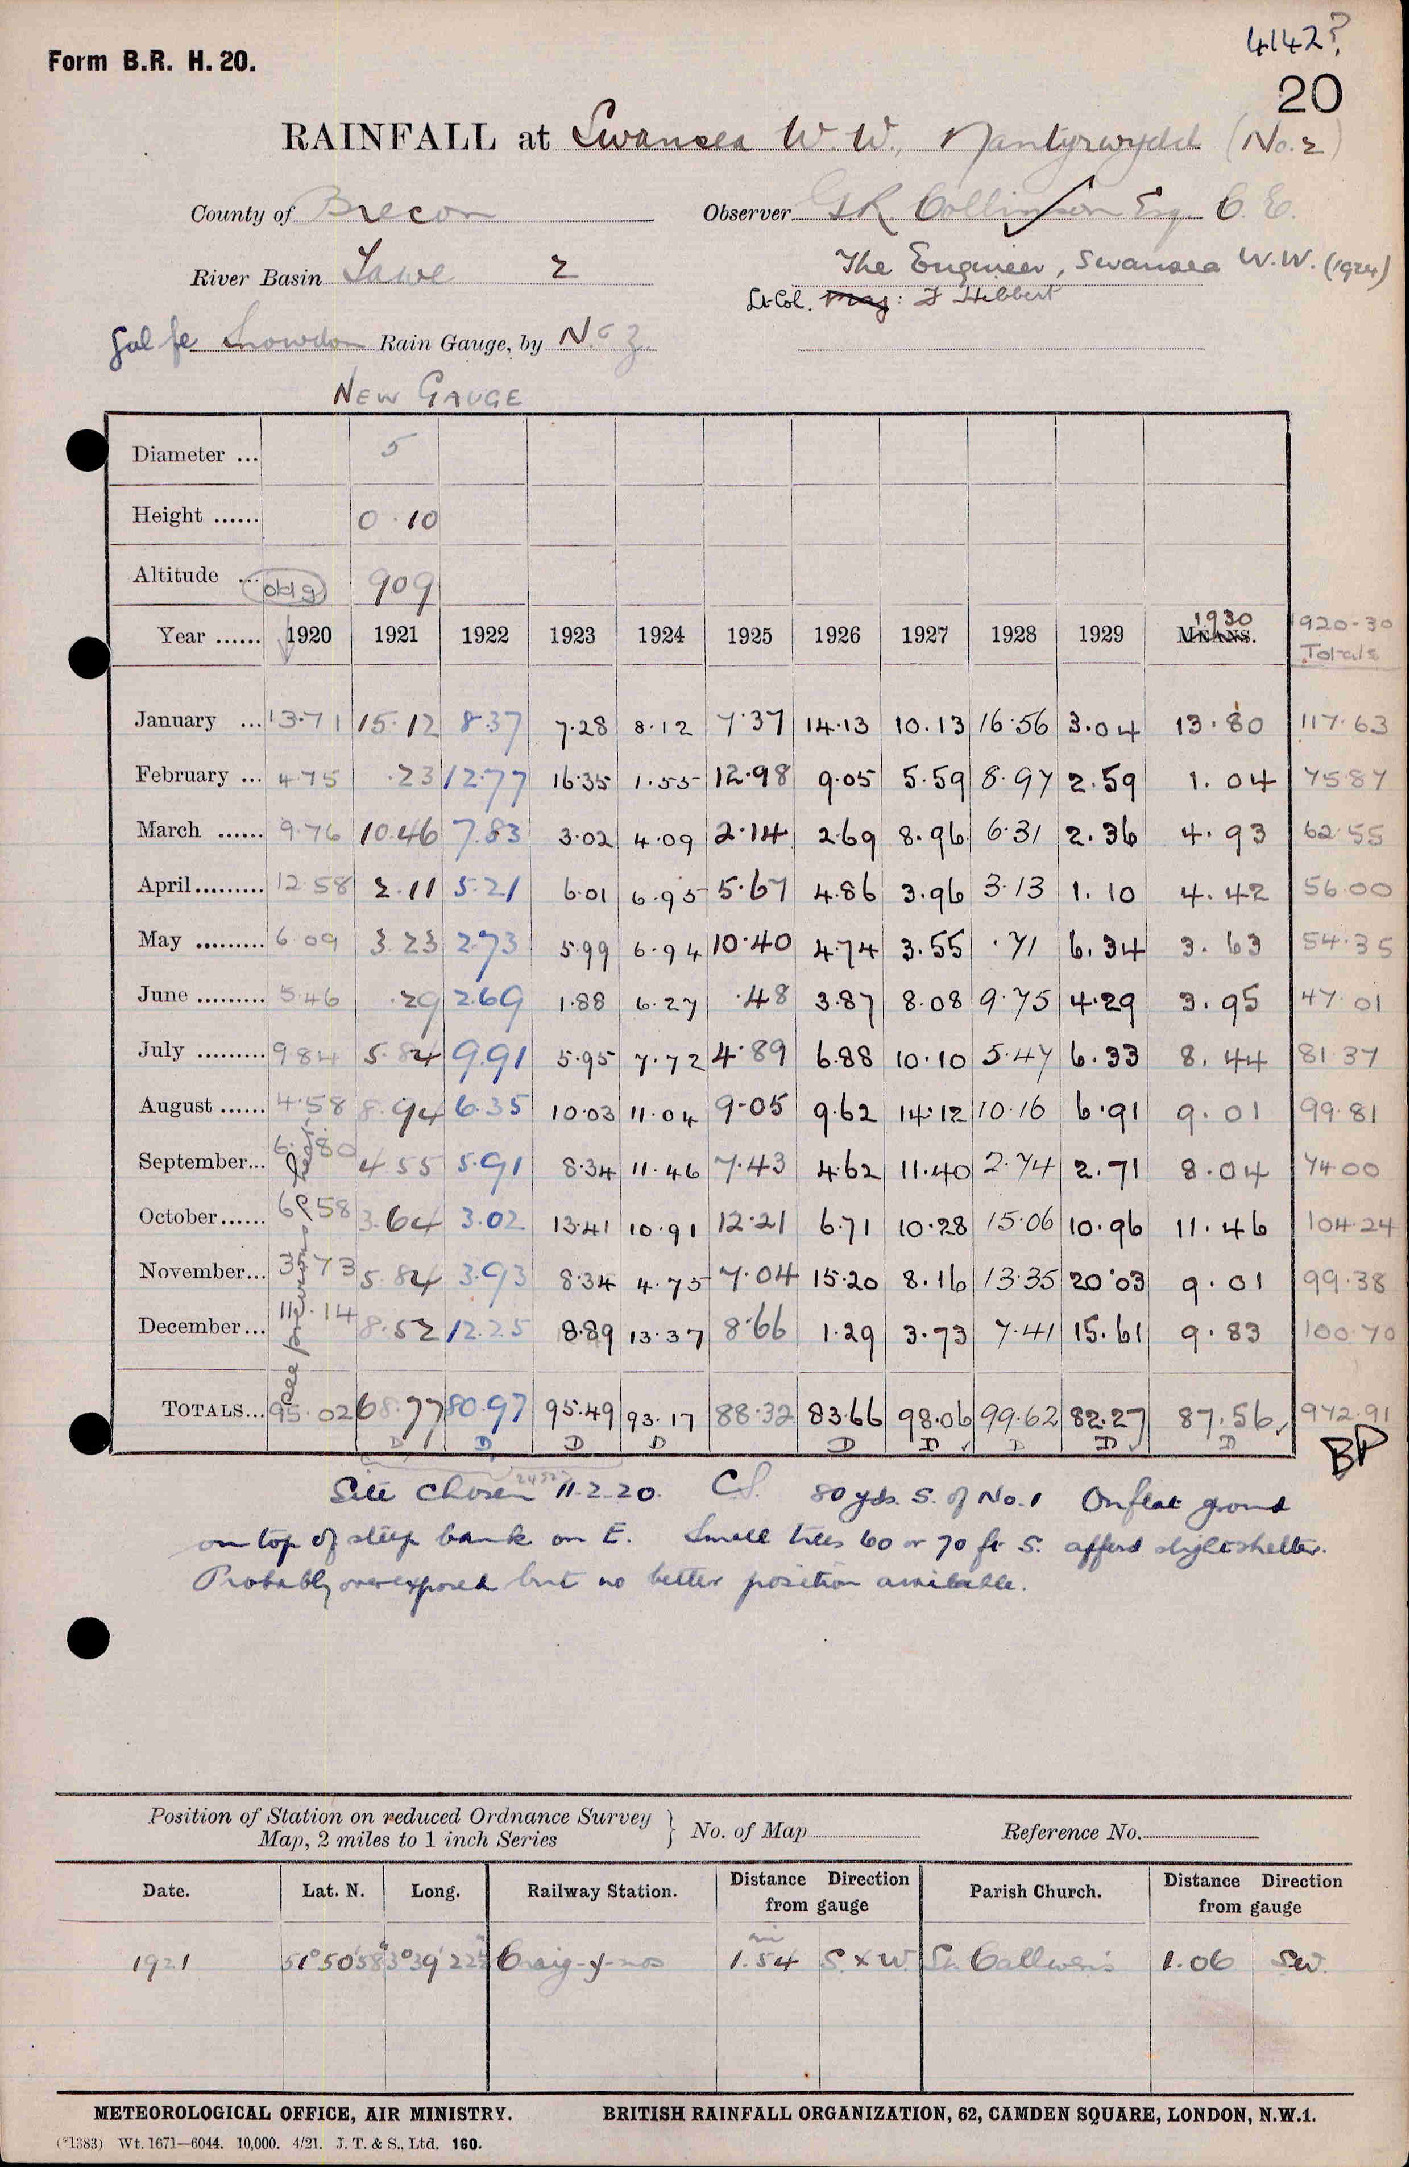 4142?
Form B.R. H. 20.
20
RAINFALL at Swansea W.W., Nantyrwydd (No. 2)
County of Brecon
Observer G R Collinson Esq. C.E.
River Basin Tawe 2
The Engineer, Swansea W.W. (1924)
Lt-Col. Maj: F Hibbert
Snowdon Rain Gauge, by N & Z.
NEW GAUGE
Diameter ... 5
Height ...... 0 . 10
Altitude ... old g 909
Year ...... 1920 1921 1922 1923 1924 1925 1926 1927 1928 1929 MEANS. 1930 1920-30 Totals
January ... 13.71 15.12 8.37 7.28 8.12 7.37 14.13 10.13 16.56 3.04 13.80 117.63
February ... 4.75 .23 12.77 16.35 1.55 12.98 9.05 5.59 8.97 2.59 1.04 75.87
March ...... 9.76 10.46 7.83 3.02 4.09 2.14 2.69 8.96 6.31 2.36 4.93 62.55
April ......... 12.58 2.11 5.21 6.01 6.95 5.67 4.86 3.96 3.13 1.10 4.42 56.00
May ......... 6.09 3.23 2.73 5.99 6.94 10.40 4.74 3.55 .71 6.34 3.63 54.35
June ......... 5.46 .29 2.69 1.88 6.27 .48 3.87 8.08 9.75 4.29 3.95 47.01
July ......... 9.84 5.84 9.91 5.95 7.72 4.89 6.88 10.10 5.47 6.33 8.44 81.37
August ...... 4.58 8.94 6.35 10.03 11.04 9.05 9.62 14.12 10.16 6.91 9.01 99.81
September... 6.80 4.55 5.91 8.34 11.46 7.43 4.62 11.40 2.74 2.71 8.04 74.00
October ...... 6.58 3.64 3.02 13.41 10.91 12.21 6.71 10.28 15.06 10.96 11.46 104.24
November... 3.73 5.84 3.93 8.34 4.75 7.04 15.20 8.16 13.35 20.03 9.01 99.38
December... 11.14 8.52 12.25 8.89 13.37 8.66 1.29 3.73 7.41 15.61 9.83 100.70
see previous sheet
TOTALS... 95.02 68.77 80.97 95.49 93.17 88.32 83.66 98.06 99.62 82.27 87.56 972.91
D D D D D D D D D
BP
Site chosen 11.2.20. CS. 80 yds. S. of No. 1 On flat ground
on top of steep bank on E. Small trees 60 or 70 ft S. afford slight shelter.
Probably overexposed but no better position available.
Position of Station on reduced Ordnance Survey
Map, 2 miles to 1 inch Series } No. of Map Reference No.
Date. Lat. N. Long. Railway Station. Distance Direction from gauge Parish Church. Distance Direction from gauge
1921 51°50'58" 3°39'22" Craig-y-nos 1.54 mi S. x W. St. Callwen's 1.06 SW.
METEOROLOGICAL OFFICE, AIR MINISTRY. BRITISH RAINFALL ORGANIZATION, 62, CAMDEN SQUARE, LONDON, N.W.1.
(*1383) Wt. 1671—6044. 10,000. 4/21. J. T. & S., Ltd. 160.